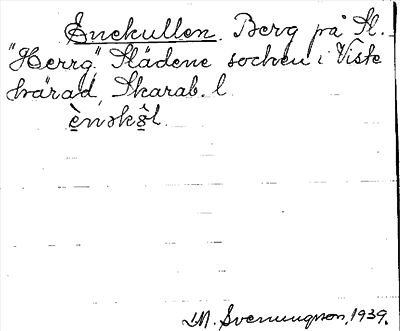 Enekullen. Berg på Sl.
"Herrg." Slädene socken i Viste
härad, Skarab. l.
ènəkŏ̤l
M. Svenungsson, 1939.